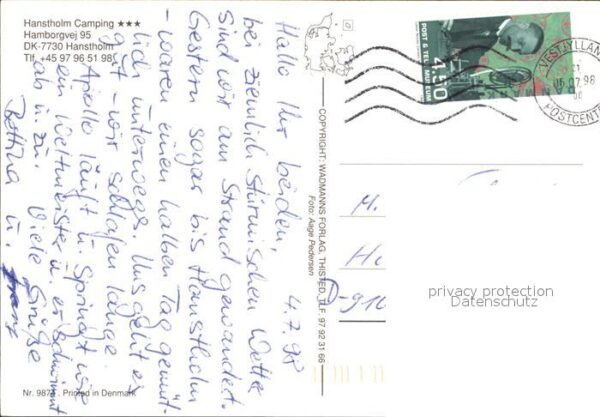 Hanstholm Camping ★★★
Hamborgvej 95
DK-7730 Hanstholm
Tlf. +45 97 96 51 98
4.7.98
Hallo Ihr beiden,
bei ziemlich stürmischen Wetter
sind wir am Strand gewandert.
Gestern sogar bis Hanstholm
- waren einen halben Tag gemüt-
lich unterwegs. Uns geht es
gut - wir schlafen lange
Apollo läuft u. springt wie
ein Weltmeister u. er schwimmt
ab u. zu. Viele Grüße
Bettina u.
Nr. 987
Printed in Denmark
COPYRIGHT: WADMANNS FORLAG, THISTED, TLF. 97 92 31 66
Foto: Aage Pedersen
POST & TELE MUSEUM
4.50
VESTJYLLANDS
POSTCENTER
07.98
M.
H
D-916
privacy protection
Datenschutz